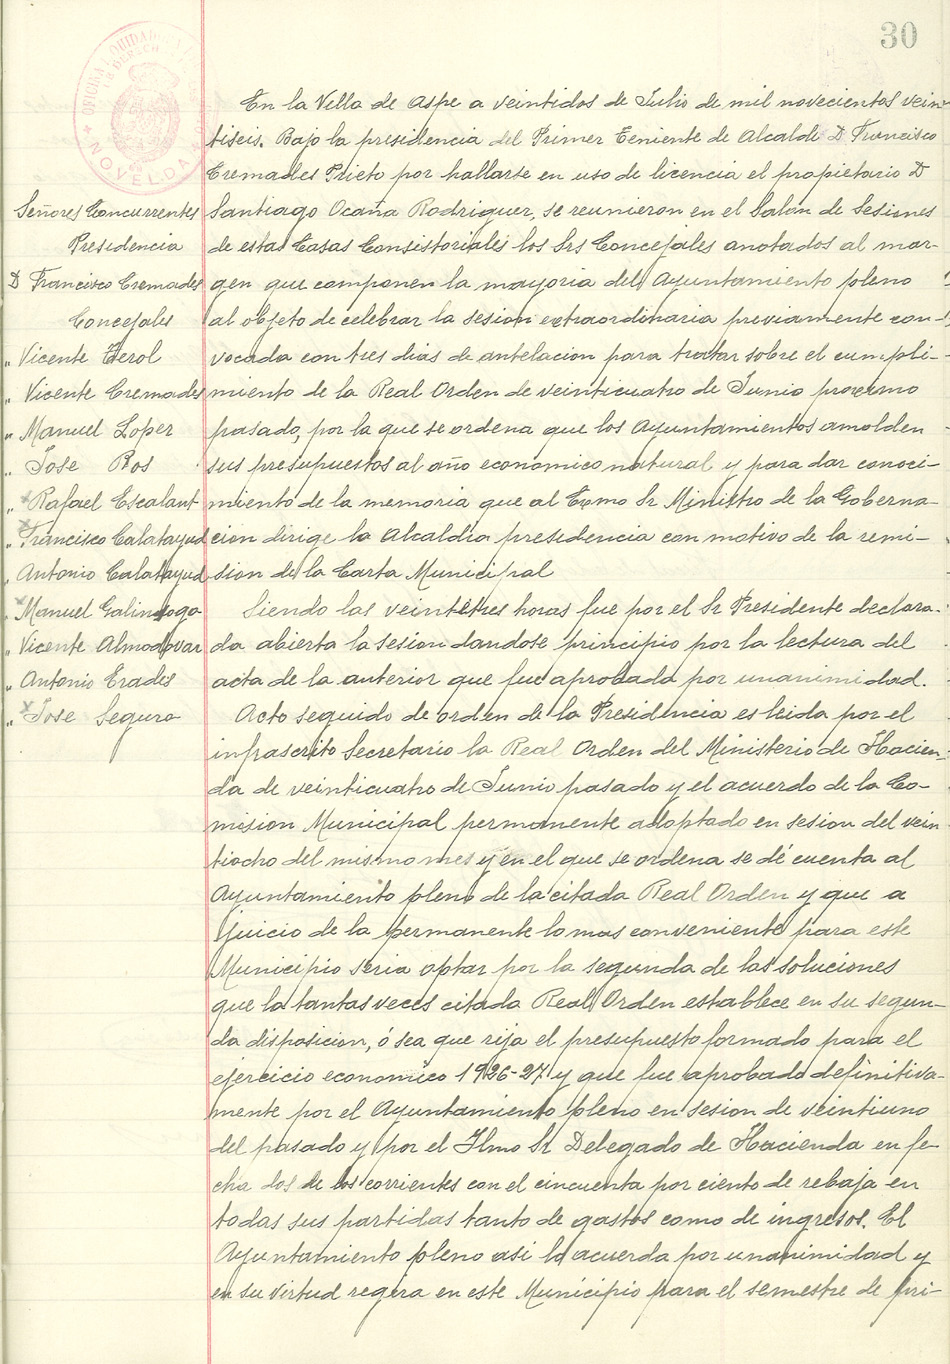 30
OFICINA LIQUIDADORA
NOVELDA
Señores Concurrentes
Presidencia
D Francisco Cremades
Concejales
" Vicente Terol
" Vicente Cremades
" Manuel Lopez
" Jose Ros
" Rafael Escalant
" Francisco Calatayud
" Antonio Calatayud
" Manuel Galindogo
" Vicente Almodovar
" Antonio Erades
" Jose Segura
En la Villa de Aspe a veintidos de Julio de mil novecientos vein-
tiseis. Bajo la presidencia del Primer Teniente de Alcalde D. Francisco
Cremades Prieto por hallarse en uso de licencia el propietario D
Santiago Ocaña Rodriguez, se reunieron en el Salon de Sesiones
de estas Casas Consistoriales los Srs Concejales anotados al mar-
gen que componen la mayoria del Ayuntamiento pleno
al objeto de celebrar la sesion extraordinaria previamente con-
vocada con tres dias de antelacion para tratar sobre el cumpli-
miento de la Real Orden de veinticuatro de Junio proximo
pasado, por la que se ordena que los Ayuntamientos amolden
sus presupuestos al año economico natural y para dar conoci-
miento de la memoria que al Exmo Sr Ministro de la Goberna-
cion dirige la Alcaldia presidencia con motivo de la remi-
sion de la Carta Municipal
Siendo las veintitres horas fue por el Sr Presidente declara-
da abierta la sesion dandose principio por la lectura del
acta de la anterior que fue aprobada por unanimidad.
Acto seguido de orden de la Presidencia es leida por el
infrascrito Secretario la Real Orden del Ministerio de Hacien-
da de veinticuatro de Junio pasado y el acuerdo de la Co-
mision Municipal permanente adoptado en sesion del vein
tiocho del mismo mes y en el que se ordena se dé cuenta al
Ayuntamiento pleno de la citada Real Orden y que a
juicio de la permanente lo mas conveniente para este
Municipio seria optar por la segunda de las soluciones
que la tantas veces citada Real Orden establece en su segun-
da disposicion, ó sea que rija el presupuesto formado para el
ejercicio economico 1926-27 y que fue aprobado definitiva-
mente por el Ayuntamiento pleno en sesion de veintiuno
del pasado y por el Ilmo Sr Delegado de Hacienda en fe-
cha dos de los corrientes con el cincuenta por ciento de rebaja en
todas sus partidas tanto de gastos como de ingresos. El
Ayuntamiento pleno asi lo acuerda por unanimidad y
en su virtud regira en este Municipio para el semestre de pri-